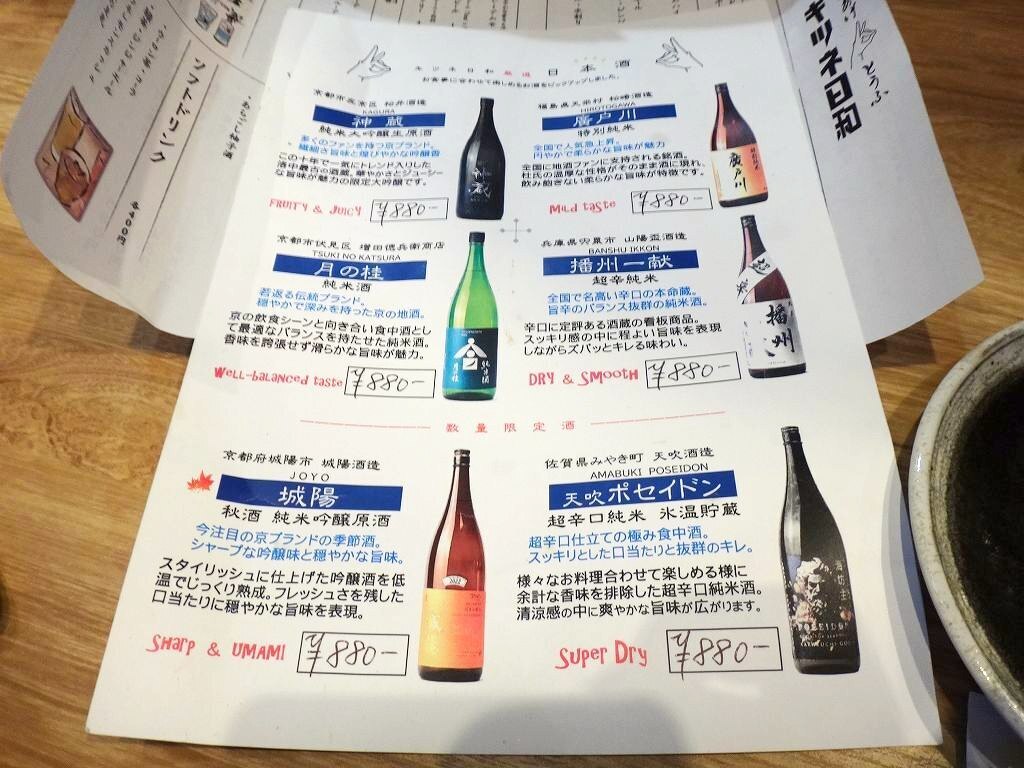 キツネ日和
とうふ
ソフトドリンク
・あらごし柚子酒
各400円
キツネ日和 厳選 日本酒
お食事に合わせて楽しめるお酒をピックアップしました。
京都市左京区 松井酒造
KAGURA
神蔵
純米大吟醸生原酒
多くのファンを持つ京ブランド。
繊細な旨味と煌びやかな吟醸香
この十年で一気にトレンド入りした
洛中最古の酒蔵。華やかさとジューシー
な旨味が魅力の限定大吟醸です。
FRUITY & JUICY
¥880-
福島県天栄村 松崎酒造
HIROTOGAWA
廣戸川
特別純米
全国で人気急上昇。
円やかで柔らかな旨味が魅力
全国に地酒ファンに支持される銘酒。
杜氏の温厚な性格がそのまま酒に現れ、
飲み飽きない柔らかな旨味が特徴です。
Mild taste
¥880-
廣戸川
京都市伏見区 増田德兵衛商店
TSUKI NO KATSURA
月の桂
純米酒
若返る伝統ブランド。
穏やかで深みを持った京の地酒。
京の飲食シーンと向き合い食中酒とし
て最適なバランスを持たせた純米酒。
香味を誇張せず滑らかな旨味が魅力。
Well-balanced taste
¥880-
純米酒
月の桂
兵庫県宍粟市 山陽盃酒造
BANSHU IKKON
播州一献
超辛純米
全国で名高い辛口の本命蔵。
旨辛のバランス抜群の純米酒。
辛口に定評ある酒蔵の看板商品。
スッキリ感の中に程よい旨味を表現
しながらズバッとキレる味わい。
DRY & SMOOTH
¥880-
播州
数量限定酒
京都府城陽市 城陽酒造
JOYO
城陽
秋酒 純米吟醸原酒
今注目の京ブランドの季節酒。
シャープな吟醸味と穏やかな旨味。
スタイリッシュに仕上げた吟醸酒を低
温でじっくり熟成。フレッシュさを残した
口当たりに穏やかな旨味を表現。
Sharp & UMAMI
¥880-
2022
佐賀県みやき町 天吹酒造
AMABUKI POSEIDON
天吹ポセイドン
超辛口純米 氷温貯蔵
超辛口仕立ての極み食中酒。
スッキリとした口当たりと抜群のキレ。
様々なお料理合わせて楽しめる様に
余計な香味を排除した超辛口純米酒。
清涼感の中に爽やかな旨味が広がります。
Super Dry
¥880-
海坊主
POSEIDON